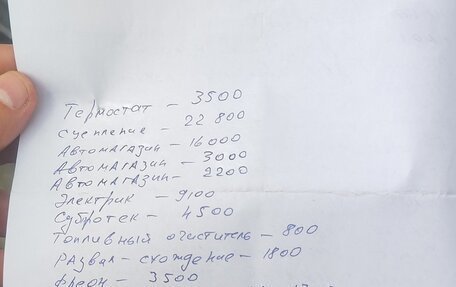 Термостат – 3500
сцепление – 22 800
Автомагазин – 16000
Автомагазин – 3000
Автомагазин – 2200
Электрик – 9100
Субротек – 4500
Топливный очиститель – 800
Развал – схождение – 1800
Фреон – 3500